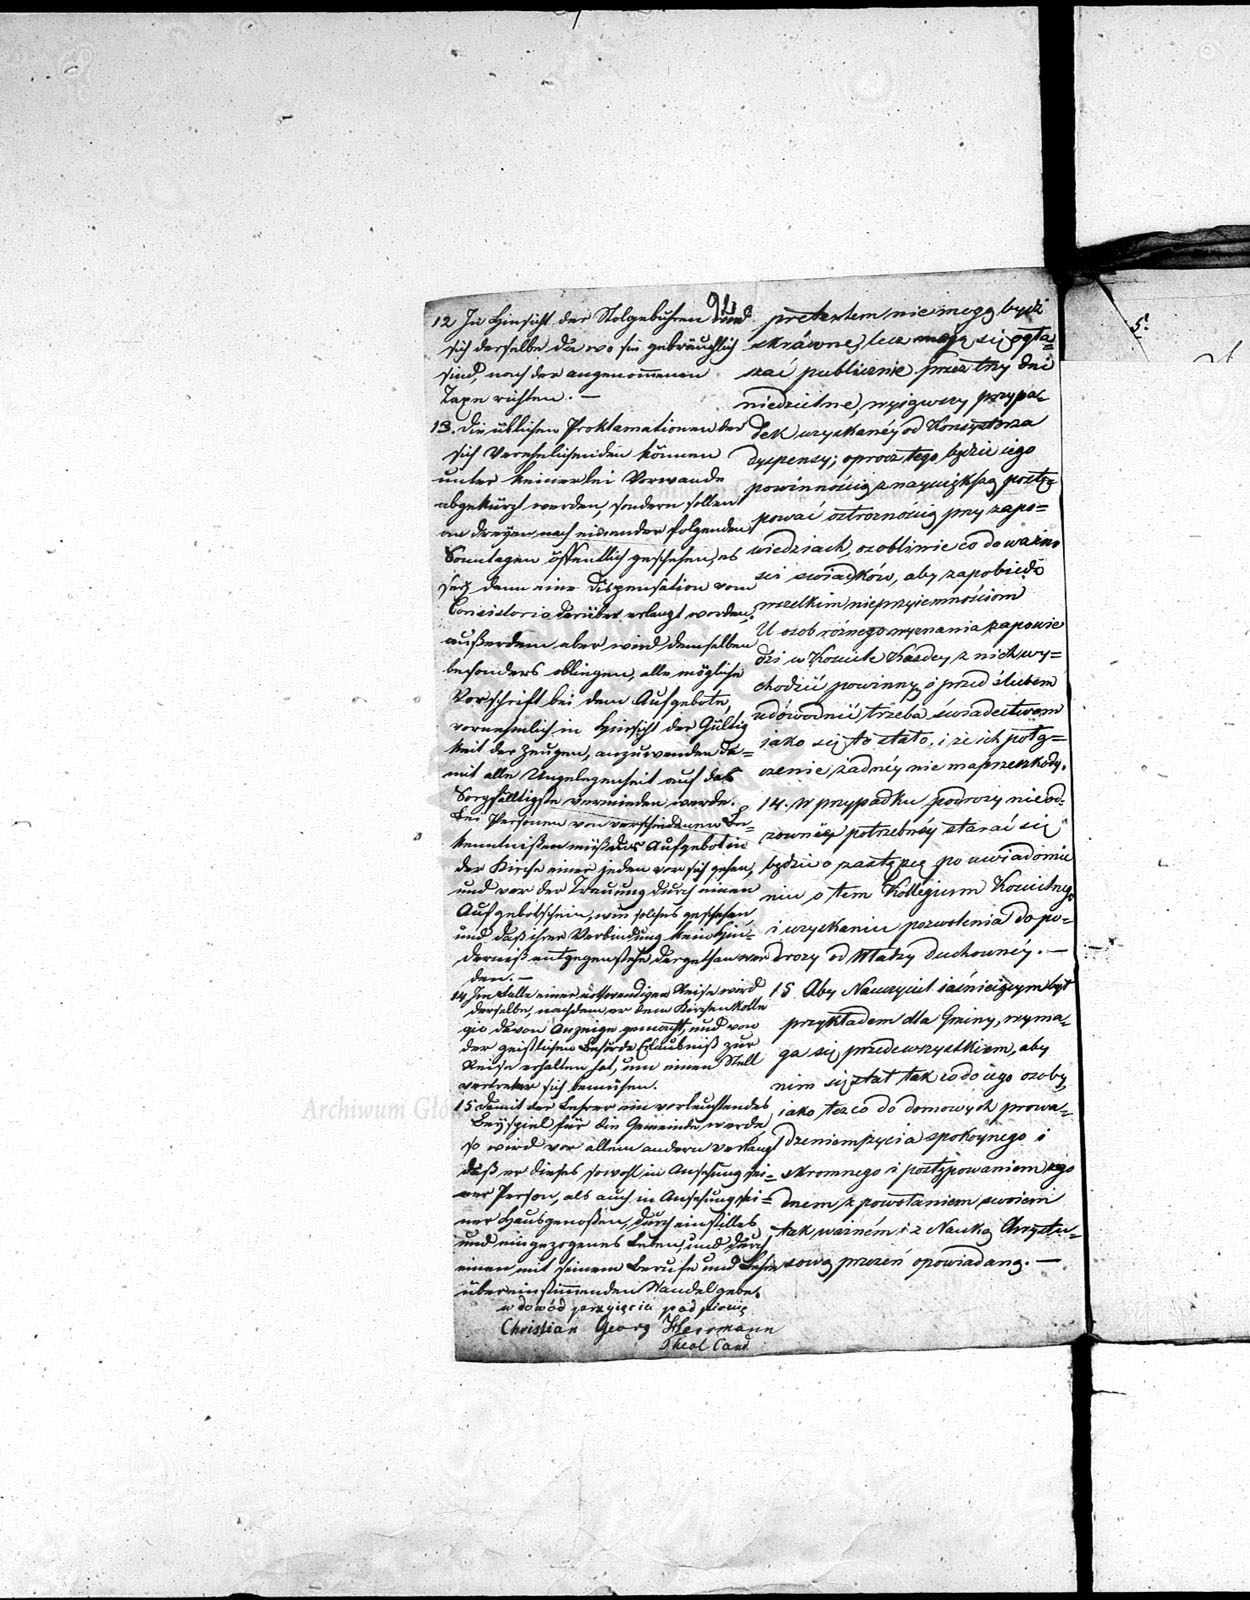 94
12 In Hinsicht der Stolgebühren wird
sich derselbe da wo sie gebräuchlich
sind, nach der angenommenen
Taxe richten. —
13. Die üblichen Proklamationen der
sich Verehelichenden können
unter keinerlei Vorwande
abgekürzt werden, sondern sollen
an dreyen nach einander folgenden
Sonntagen öffentlich geschehen, es
sey denn eine Dispensation vom
Consistorio darüber erlangt worden,
außerdem aber wird demselben
besonders obliegen, alle mögliche
Vorschrift bei dem Aufgebote,
vornehmlich in Hinsicht der Gültig
keit der Zeugen, anzuwenden da=
mit alle Ungelegenheit auf das
Sorgfältigste vermieden werde.
Bei Personen von verschiedenen Be=
kenntnißen müße das Aufgebot in
der Kirche einer jeden vor sich gehen,
und vor der Trauung durch einen
Aufgebotschein, wie solches geschehen
und daß ihrer Verbindung kein Hin=
derniß entgegenstehe, dargethan wer
den. —
14 Im Falle einer nothwendigen Reise wird
derselbe, nachdem er dem Kirchen Kolle
gio davon Anzeige gemacht, und von
der geistlichen Behörde Erlaubniß zur
Reise erhalten hat, um einen Stell
vertreter sich bemühen.
15 Damit der Lehrer ein vorleuchtendes
Beyspiel für die Gemeinde werde,
so wird vor allem andern verlangt
daß er dieses sowohl in Ansehung sei=
ner Person, als auch in Ansehung sei=
ner Hausgenoßen, durch ein stilles
und eingezogenes Leben, und durch
einen mit seinem Berufe und Lehre
übereinstimmenden Wandel gebe.
w dowód przyięcia podpisuię
Christian Georg Herrmann
Theol Cand.
pretextem nie mogą bydź
skrócone, lecz mają się ogła=
szać publicznie przez trzy dni
niedzielne, wyiąwszy przypa=
dek uzyskanéy od Konsystorza
dyspensy; oprocz tego będzie iego
powinnością z naywiększą postę=
pować ostrożnością przy zapo=
wiedziach, osobliwie co do ważno
ści świadków, aby zapobiedz
wszelkim nieprzyiemnościom
U osob różnego wyznania zapowie
dzi w Kościele Każdey z nich wy=
chodzić powinny, i przed ślubem
udowodnić trzeba świadectwem
jako się to stało, i że ich połą=
czenie żadnéy nie ma przeszkody.
14. W przypadku podroży nieod=
zownéy potrzebnéy starać się
będzie o zastępcę po uwiadomie
niu o tem Kollegium Kościelnego
i uzyskaniu pozwolenia do po=
droży od Władzy Duchownéy. —
15. Aby Nauczyciel iaśnieiącym był
przykładem dla Gminy, wyma=
ga się przedewszystkiem, aby
nim się stał tak co do iego osoby,
jako też co do domowych prowa=
dzeniem życia spokoynego i
skromnego i postępowaniem zgo
dnem z powołaniem swoiem
tak ważném i z Nauką Chrystu=
sową przezeń opowiadaną. —
5.
Archiwum Główne